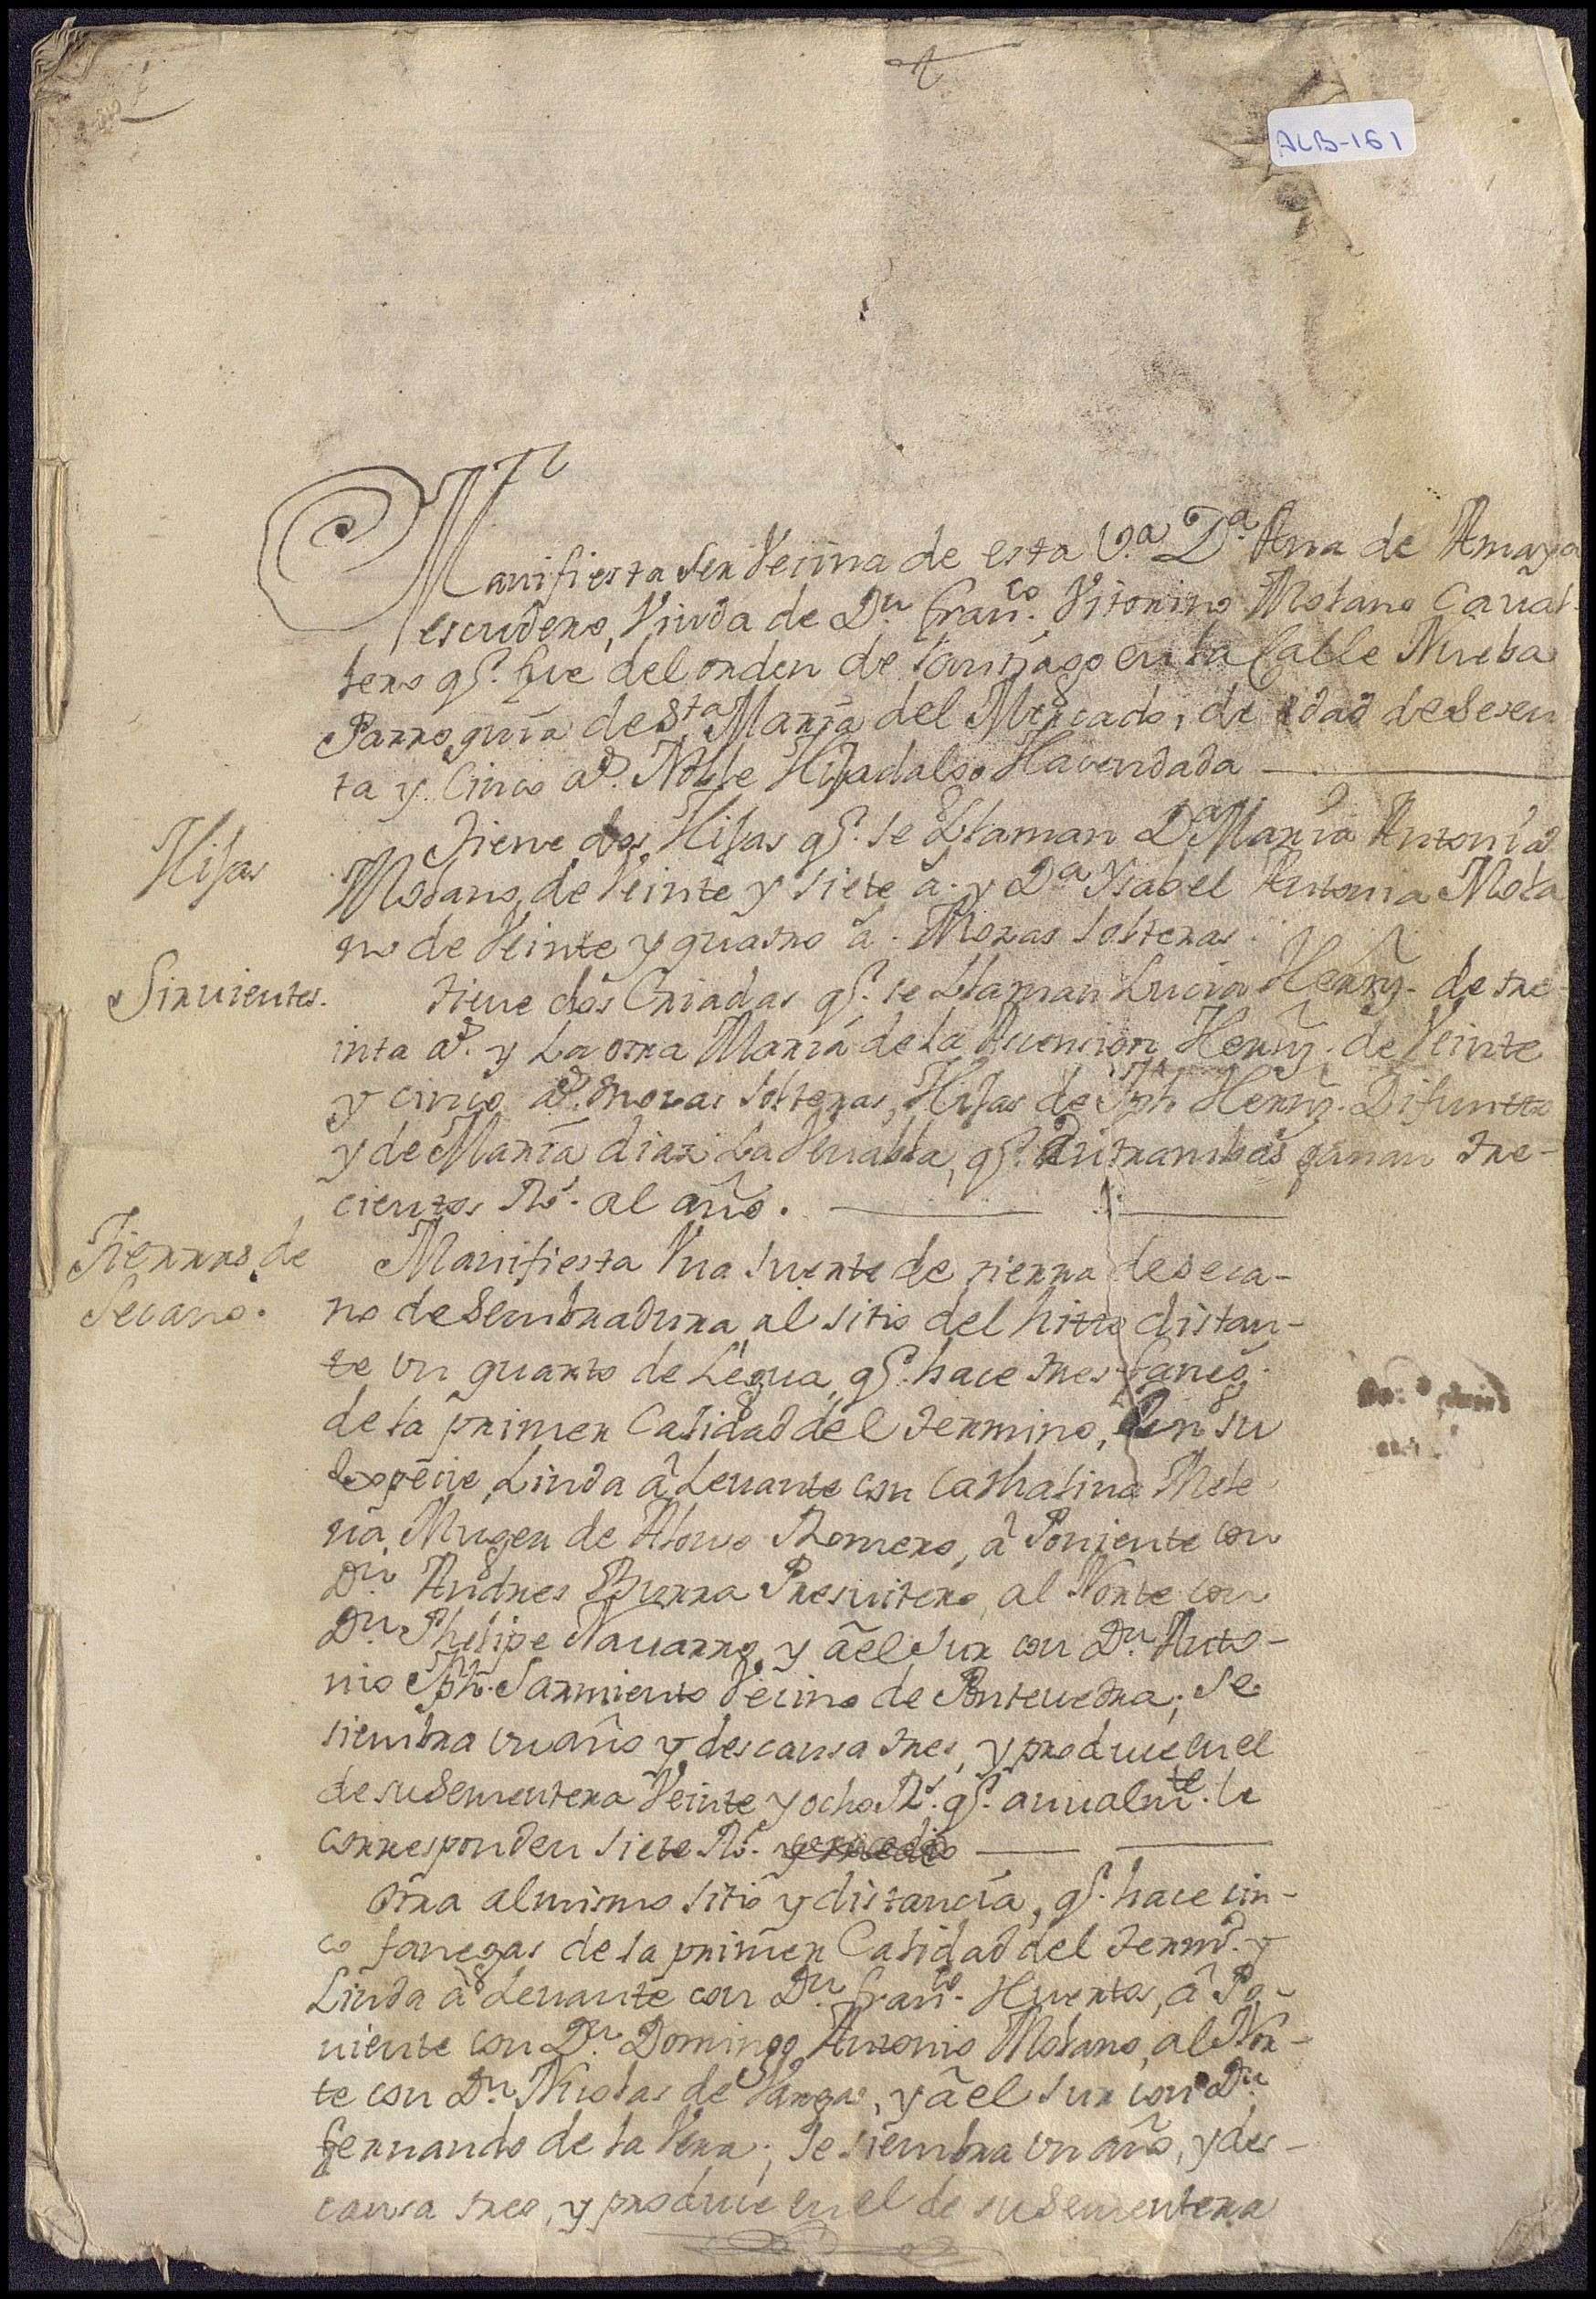 ALB-161
Manifiesta Ser Vecina de esta V.a D.a Ana de Amaya
escudero, Viuda de D.n Fran.co Vitorino Molano Caual-
lero q.e fue del orden de Santiago en la Calle Nueba
Parroquia de S.ta María del Mercado, de edad de Sesen
ta y Cinco a.s Noble Hijadalgo Hacendada
Hijas
Tiene dos Hijas q.e se Llaman D.a María Antonia
Molano, de Veinte y siete a.s y D.a Ysabel Antonia Mola
no de Veinte y quatro a.s Mozas Solteras.
Siruientes.
Tiene dos Criadas q.e se Llaman Lucía Hernz. de tre-
inta a.s y La otra María de la Asension Hernz. de Veinte
y cinco a.s mozas Solteras, Hijas de Jph Hernz. Difunto
y de María diaz La q.e Entrambas ganan tre-
cientos R.s al año.
Tierras de
Secano.
Manifiesta Vna Suerte de tierra de seca-
no de Sembradura al sitio del hitto distan-
te vn quarto de Legua, q.e hace tres faneg.s
de la primer Calidad del termino, En su
expecie, Linda â Leuante con Cathalina Mele
na Muger de Alonso Romero, â Poniente con
D.n Andres Burra Presuitero, al Norte con
D.n Phelipe Nauarro, y âel Sur con D.n Anto-
nio Jph. Sarmiento Vecino de Ponteuedra; Se
siembra vn año y descansa tres, y produce en el
de su Sementera Veinte y ocho R.s q.e anualm.te le
corresponden siete R.s
Otra al mismo sitio y distancia, q.e hace cin-
co fanegas de la primer Calidad del term.o y
Linda â Leuante con D.n Fran.co Huertos, â Po-
niente con D.n Domingo Antonio Molano, al Nor-
te con D.n Nicolas de Vargas, y âel Sur con D.n
Fernando de la Vera; Se siembra vn año, y des-
cansa tres, y produce en el de su Sementera